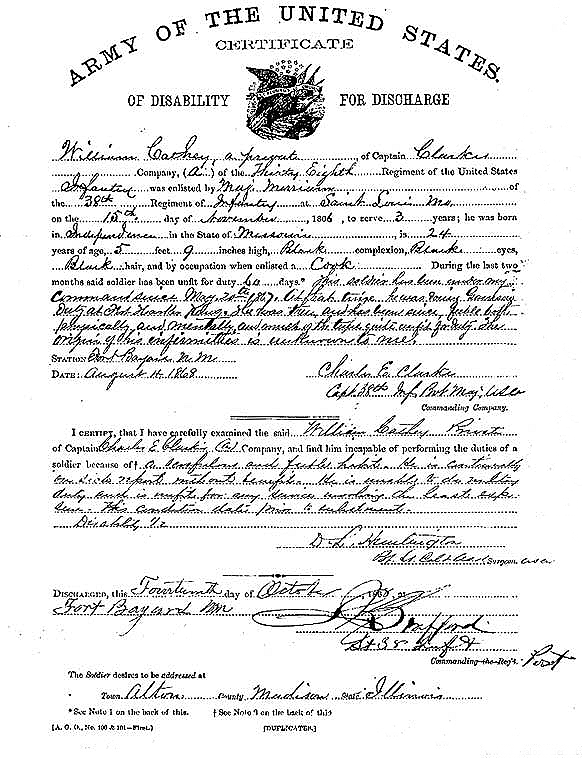 ARMY OF THE UNITED STATES.
CERTIFICATE
OF DISABILITY FOR DISCHARGE
William Cathey, a private of Captain Clarke's
Company, (A.) of the Thirty Eighth Regiment of the United States
Infantry was enlisted by Maj. Merriam of
the 38th Regiment of Infantry at Saint Louis Mo.
on the 15th day of November, 1866, to serve 3 years; he was born
in Independence in the State of Missouri, is 24
years of age, 5 feet 9 inches high, Black complexion, Black eyes,
Black hair, and by occupation when enlisted a Cook. During the last two
months said soldier has been unfit for duty 60 days.* This soldier has been under my
command since May 20th 1867. he was doing Garrison
Duty at Fort He was then, and has been since, feeble both
physically and mentally, and much of the time quite unfit for duty. The
origin of his infirmities is unknown to me.
STATION: Fort Bayard N.M.
DATE: August 11 1868
Charles E. Clarke
Capt. 38th Inf. Bvt. Maj. USA
Commanding Company.
I CERTIFY, that I have carefully examined the said William Cathey Privt
of Captain Charles E Clarke's Company, and find him incapable of performing the duties of a
soldier because of† a and feeble habit. He is continually
on sick report without benefit. He is unable to do military
duty and is unfit for any
This condition dates prior to enlistment.
Disability
D. L. Huntington
Surgeon. USA
DISCHARGED, this Fourteenth day of October, 1868, at
Fort Bayard NM
38 Inf
Commanding the Reg't. Post
The Soldier desires to be addressed at
Town Alton County Madison State Illinois
*See Note 1 on the back of this. †See Note 2 on the back of this
[A. G. O., No. 100 & 101—First.] [DUPLICATES.]